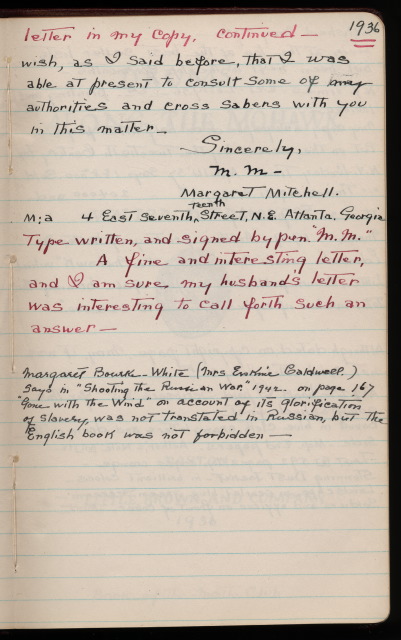 1936
letter in my Copy, Continued —
wish, as I said before, that I was
able at present to consult some of my
authorities and cross sabers with you
in this matter —
Sincerely,
M. M —
Margaret Mitchell.
teenth
M:a 4 East Seventh, Street, N.E. Atlanta. Georgia
Type written, and signed by pen "M. M."
A fine and interesting letter,
and I am sure, my husband's letter
was interesting to call forth such an
answer —
Margaret Bourk-White (Mrs Erskine Caldwell.)
Says in "Shooting the Russian War," 1942 — on page 167
"Gone with the Wind" on account of its glorification
of slavery, was not translated in Russian, but the
English book was not forbidden —